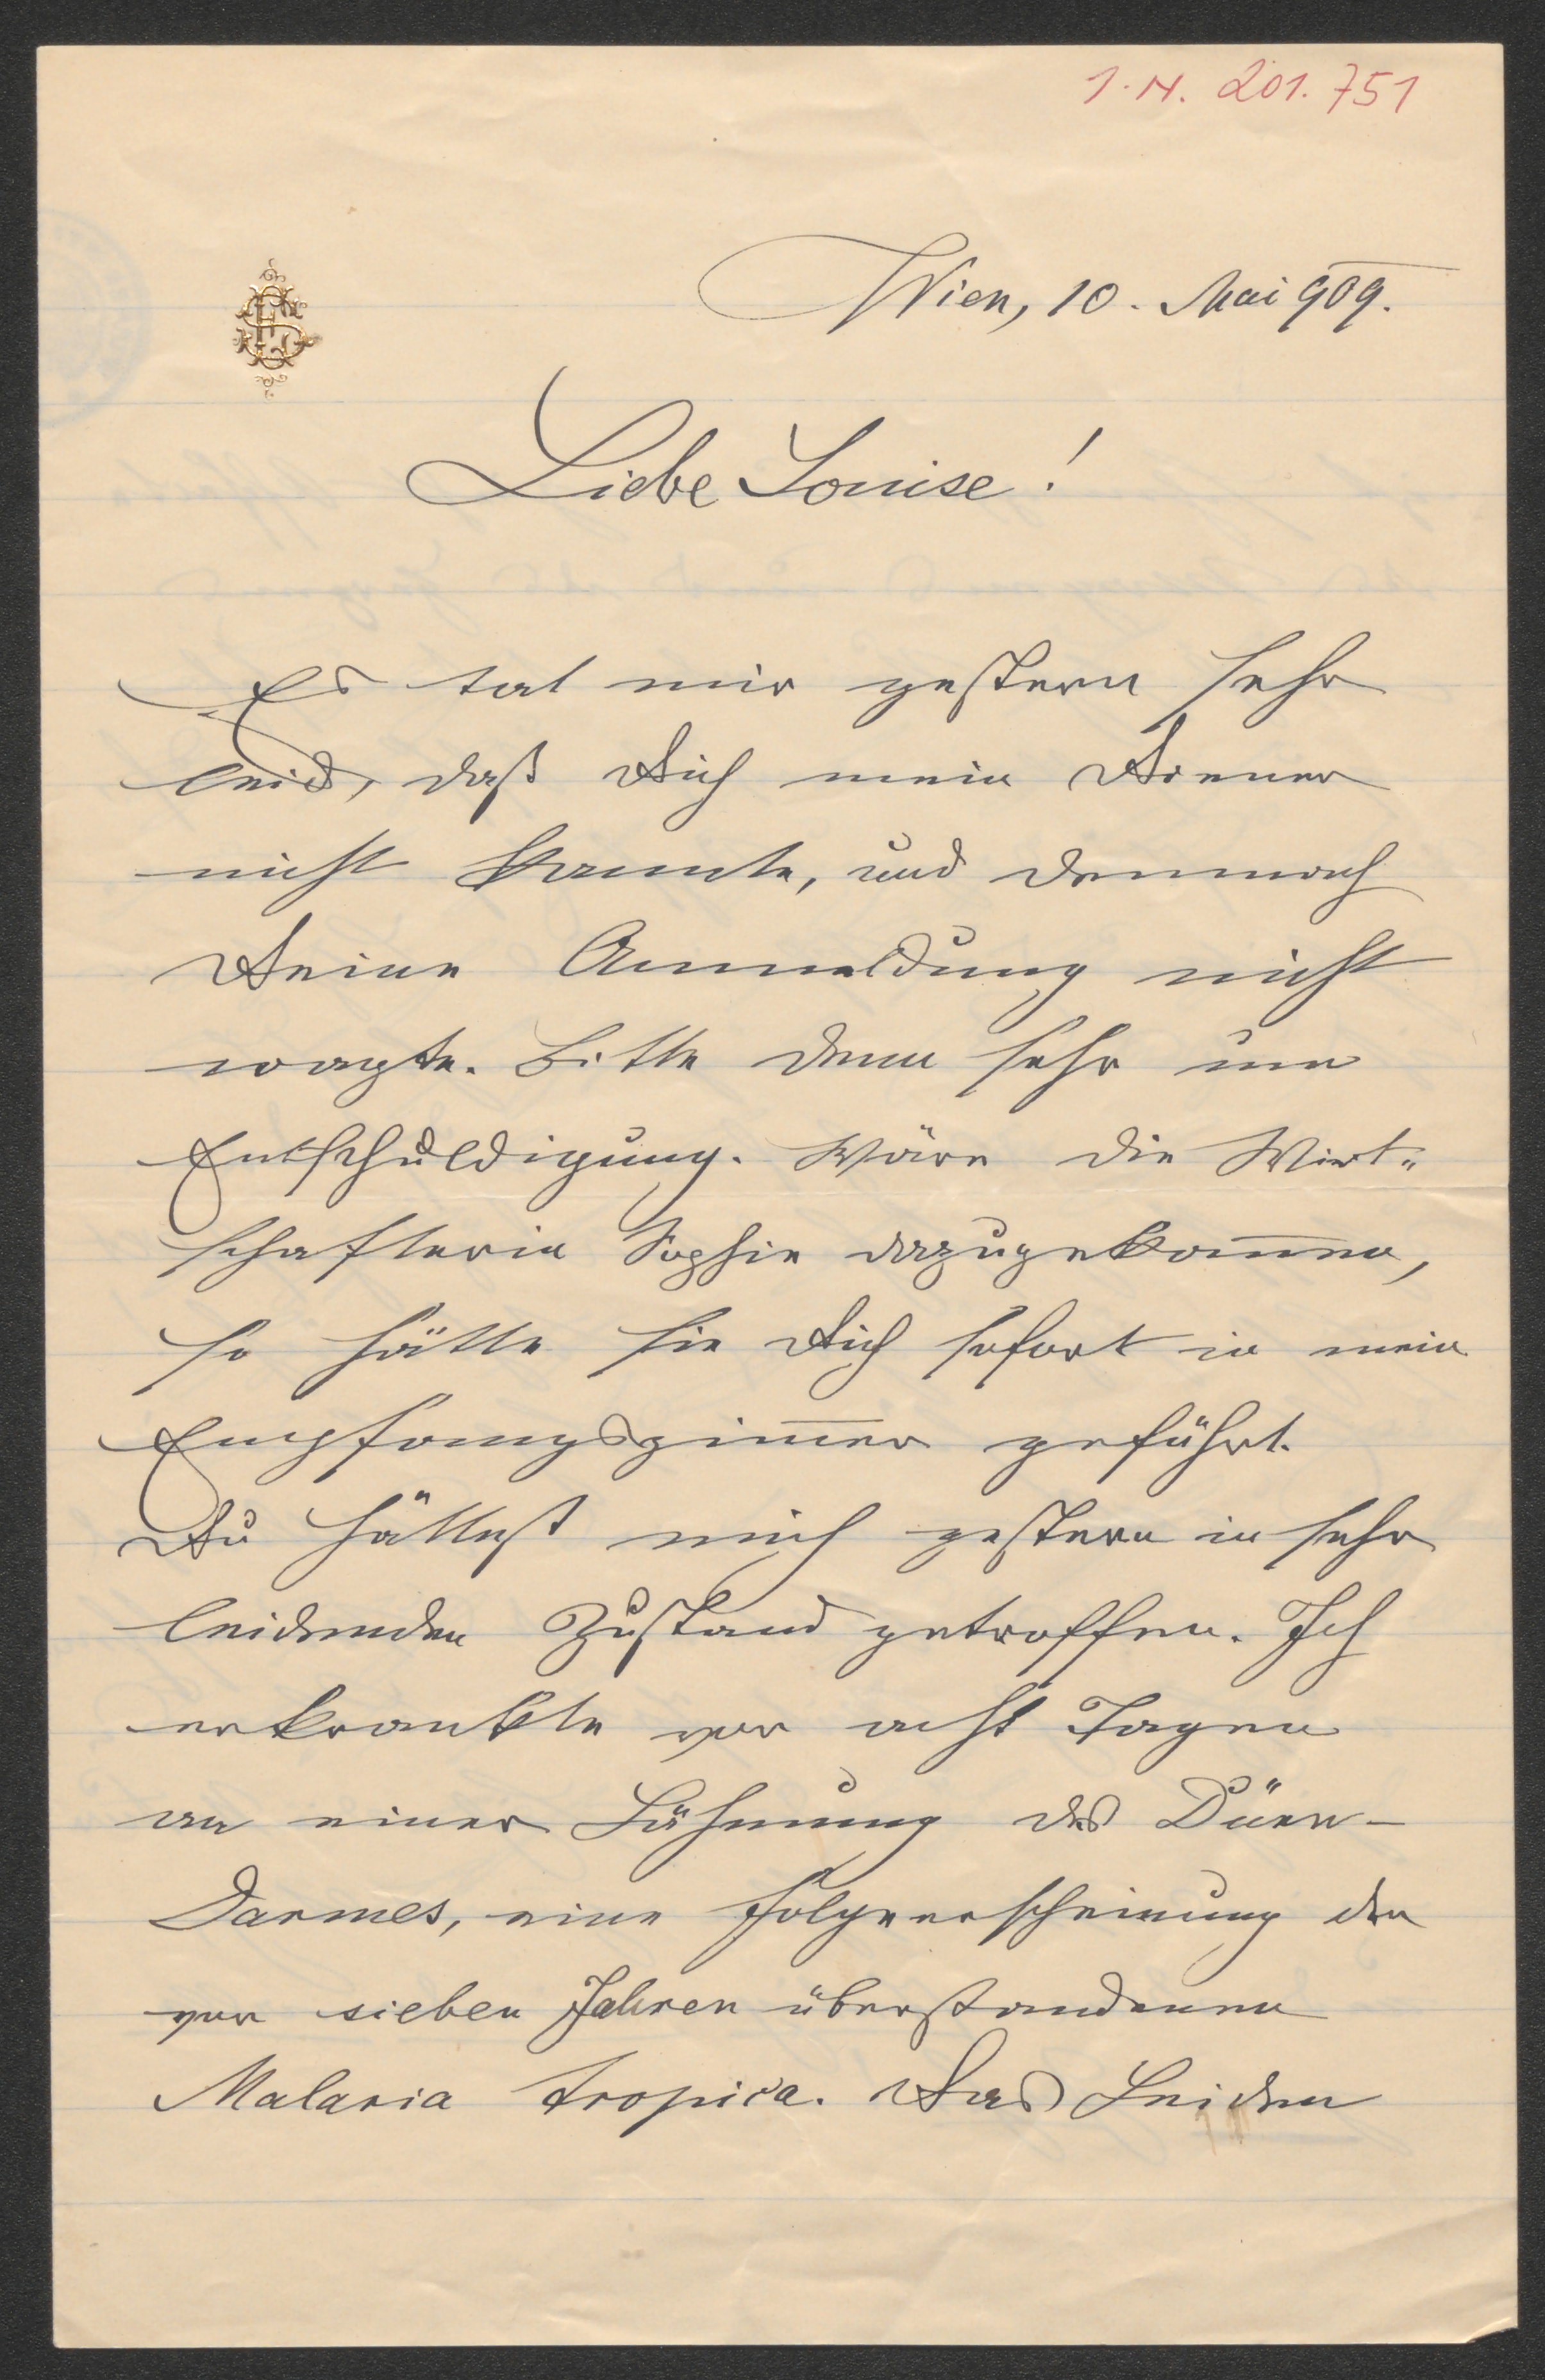 I.N. 201.751
Wien, 10. Mai 909.
Liebe Louise!
Es tat mir gestern sehr
leid, daß Dich mein Diener
nicht kannte, und demnach
Deine Anmeldung nicht
wagte. Bitte denn sehr um
Entschuldigung. Wäre die Wirt„
schafterin Sophie dazugekom̅en,
so hätte sie Dich sofort in mein
Empfangszim̅er geführt.
Du hättest mich gestern in sehr
leidenden Zustand getroffen. Ich
erkrankte vor acht Tagen
an einer Lähmung des Dünn-
Darmes, eine Folgeerscheinung der
vor sieben Jahren überstandenen
Malaria tropica. Das Leiden